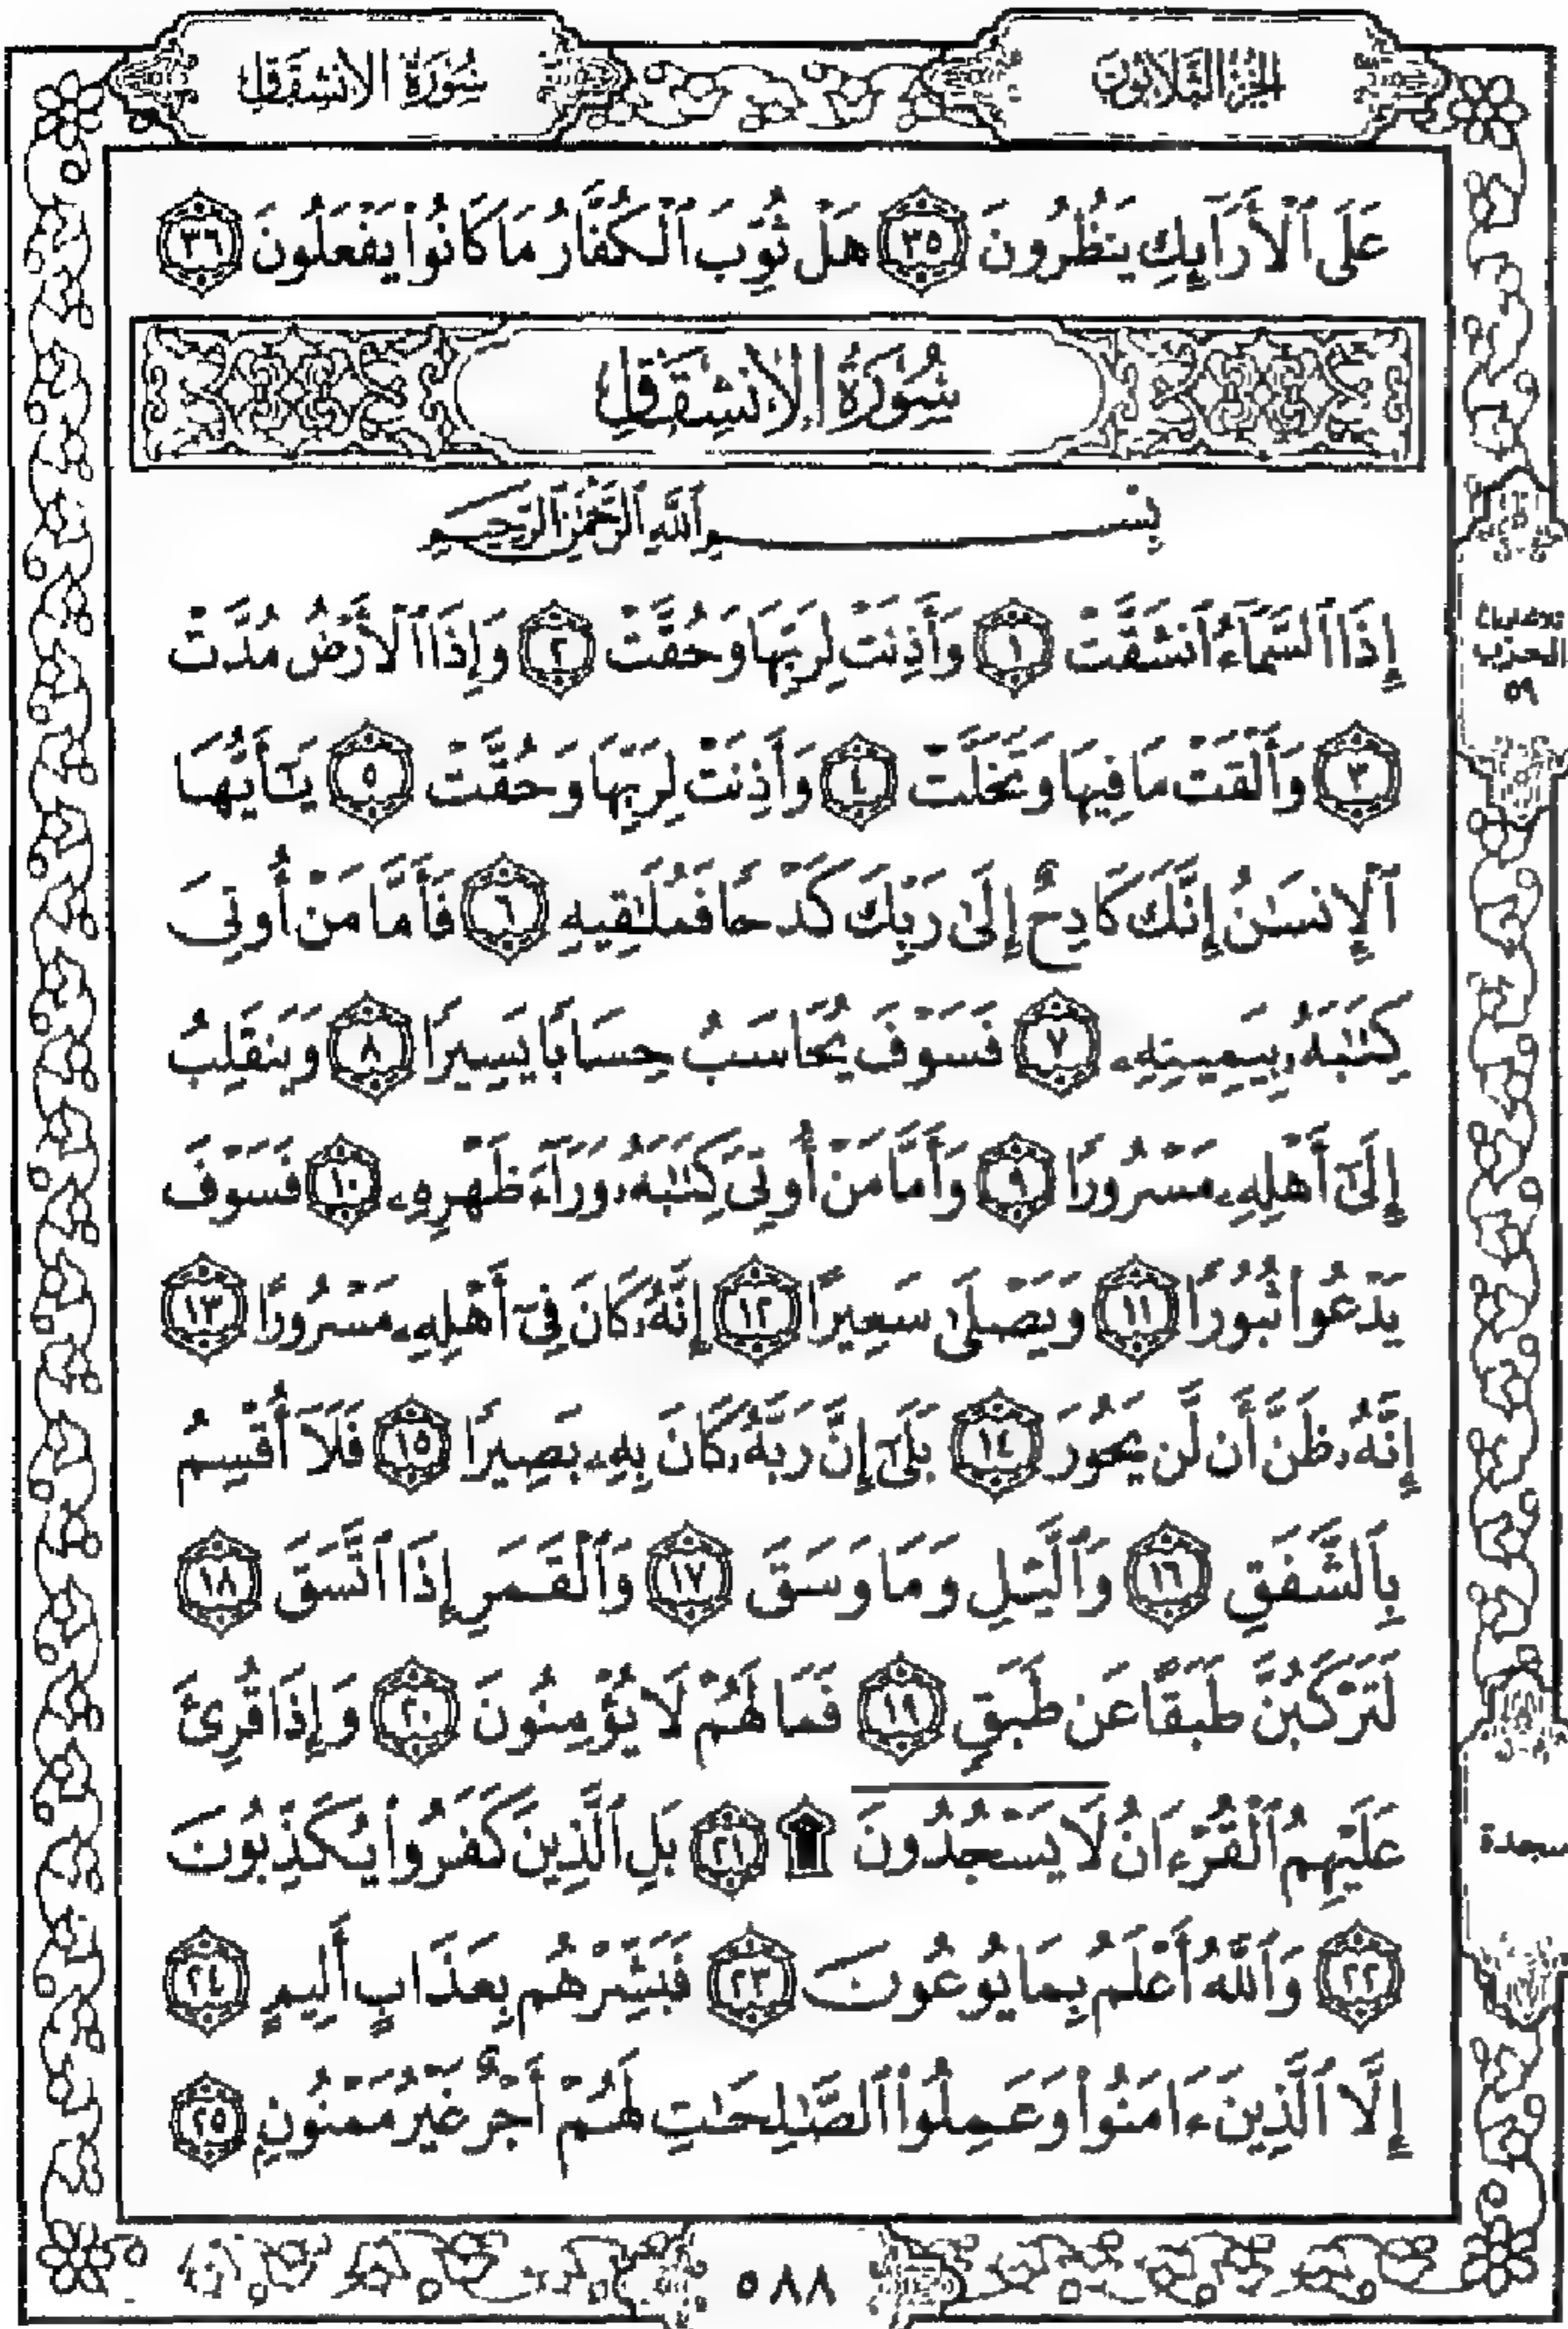 الجزء الثلاثون
سورة الانشقاق
عَلَى ٱلْأَرَآئِكِ يَنظُرُونَ ٣٥ هَلْ ثُوِّبَ ٱلْكُفَّارُ مَا كَانُوا۟ يَفْعَلُونَ ٣٦
سُورَةُ الانشِقَاقِ
بِسْمِ ٱللَّهِ ٱلرَّحْمَٰنِ ٱلرَّحِيمِ
إِذَا ٱلسَّمَآءُ ٱنشَقَّتْ ١ وَأَذِنَتْ لِرَبِّهَا وَحُقَّتْ ٢ وَإِذَا ٱلْأَرْضُ مُدَّتْ
٣ وَأَلْقَتْ مَا فِيهَا وَتَخَلَّتْ ٤ وَأَذِنَتْ لِرَبِّهَا وَحُقَّتْ ٥ يَٰٓأَيُّهَا
ٱلْإِنسَٰنُ إِنَّكَ كَادِحٌ إِلَىٰ رَبِّكَ كَدْحًا فَمُلَٰقِيهِ ٦ فَأَمَّا مَنْ أُوتِىَ
كِتَٰبَهُۥ بِيَمِينِهِۦ ٧ فَسَوْفَ يُحَاسَبُ حِسَابًا يَسِيرًا ٨ وَيَنقَلِبُ
إِلَىٰٓ أَهْلِهِۦ مَسْرُورًا ٩ وَأَمَّا مَنْ أُوتِىَ كِتَٰبَهُۥ وَرَآءَ ظَهْرِهِۦ ١٠ فَسَوْفَ
يَدْعُوا۟ ثُبُورًا ١١ وَيَصْلَىٰ سَعِيرًا ١٢ إِنَّهُۥ كَانَ فِىٓ أَهْلِهِۦ مَسْرُورًا ١٣
إِنَّهُۥ ظَنَّ أَن لَّن يَحُورَ ١٤ بَلَىٰٓ إِنَّ رَبَّهُۥ كَانَ بِهِۦ بَصِيرًا ١٥ فَلَآ أُقْسِمُ
بِٱلشَّفَقِ ١٦ وَٱلَّيْلِ وَمَا وَسَقَ ١٧ وَٱلْقَمَرِ إِذَا ٱتَّسَقَ ١٨
لَتَرْكَبُنَّ طَبَقًا عَن طَبَقٍ ١٩ فَمَا لَهُمْ لَا يُؤْمِنُونَ ٢٠ وَإِذَا قُرِئَ
عَلَيْهِمُ ٱلْقُرْءَانُ لَا يَسْجُدُونَ ۩ ٢١ بَلِ ٱلَّذِينَ كَفَرُوا۟ يُكَذِّبُونَ
٢٢ وَٱللَّهُ أَعْلَمُ بِمَا يُوعُونَ ٢٣ فَبَشِّرْهُم بِعَذَابٍ أَلِيمٍ ٢٤
إِلَّا ٱلَّذِينَ ءَامَنُوا۟ وَعَمِلُوا۟ ٱلصَّٰلِحَٰتِ لَهُمْ أَجْرٌ غَيْرُ مَمْنُونٍۭ ٢٥
الحزب
٥٩
سجدة
٥٨٨